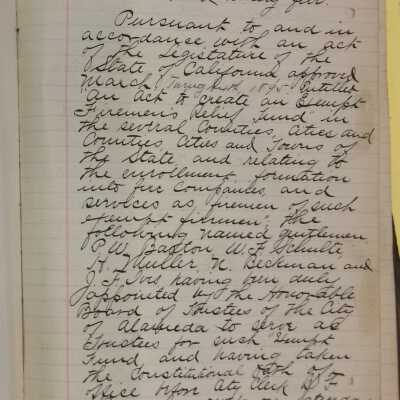 Pursuant to and in
accordance with an act
of the Legislature of the
State of California, approved
March 1895 Entitled
"An Act to create an Exempt
Firemen's Relief Fund" in
the several Counties, Cities and
Counties, Cities and Towns of
the State, and relating to
the enrollment, formation
into fire Companies, and
services as firemen of such
exempt firemen", the
following named gentlemen
P.W. Barton W.F. Schulte,
H. Muller, N. Beckman and
J.H. having been duly
appointed by the Honorable
Board of Trustees of the City
of Alameda to serve as
Trustees for such Exempt
Fund, and having taken
the Constitutional Oath of
office before City Clerk